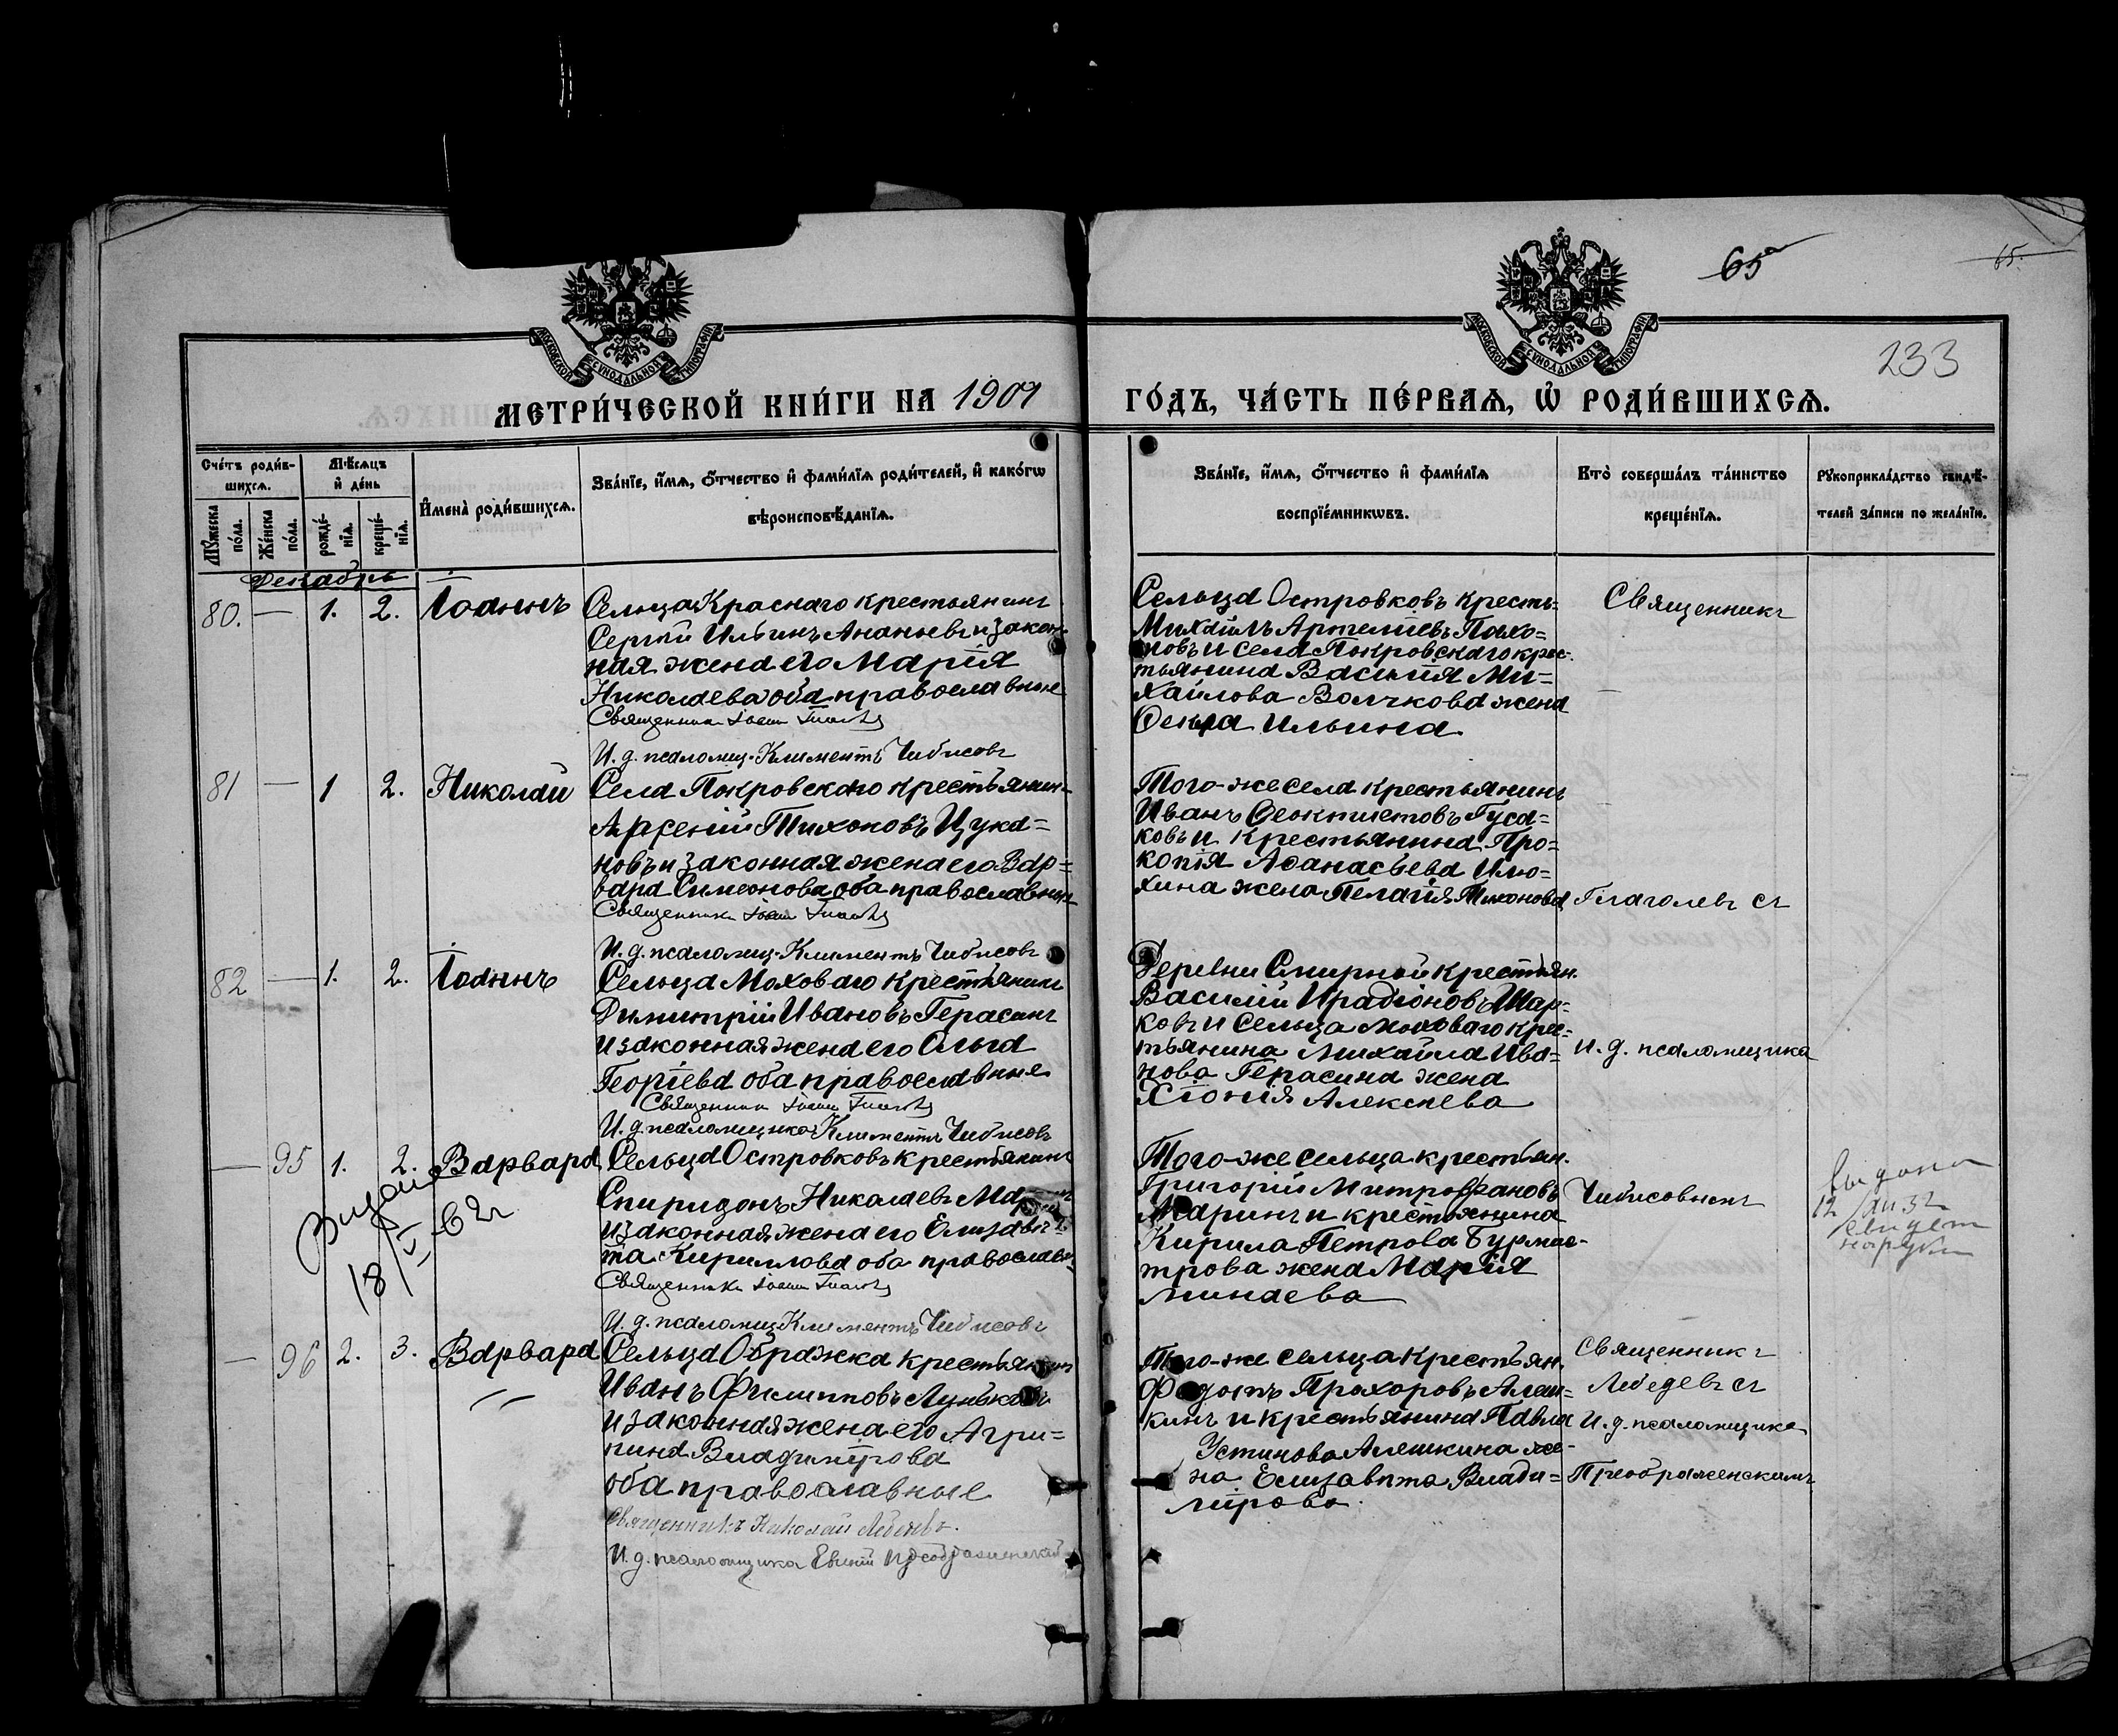 65
65.
233
МОСКОВСКОЙ СѴНОДАЛЬНОЙ ТИПОГРАФІИ
МОСКОВСКОЙ СѴНОДАЛЬНОЙ ТИПОГРАФІИ
МЕТРИ́ЧЕСКОЙ КНИ́ГИ НА 1901
ГО́ДЪ, ЧА́СТЬ ПЕ́РВАѦ, Ѡ҆ РОДИ́ВШИХСѦ.
Сче́тъ роди́в-
шихсѧ.
Мѣ́сѧцъ
и҆ де́нь
Му́жеска
по́ла.
Же́нска
по́ла.
рожде́-
нїѧ.
креще́-
нїѧ.
И҆мена̀ роди́вшихсѧ.
Зва́нїе, и҆́мѧ, ѻ҆́тчество и҆ фами́лїѧ роди́телей, и҆ како́гѡ
вѣроисповѣ́данїѧ.
Зва́нїе, и҆́мѧ, ѻ҆́тчество и҆ фами́лїѧ
воспрїе́мникѡвъ.
Кто̀ соверша́лъ та́инство
креще́нїѧ.
Рукоприкла́дство свидѣ́-
телей за́писи по жела́нїю.
Декабрь
80. — 1. 2. Іоаннъ
Сельца Краснаго крестьянинъ
Сергѣй Ильинъ Ананьевъ и закон-
ная жена его Марія
Николаева оба православные
Священникъ Іоаннъ
И. д. псаломщ. Климентъ Чибисовъ
Сельца Островковъ кресть-
Михаилъ Артемьевъ Пахо-
мовъ и села Покровскаго крес-
тьянина Василія Ми-
хайлова Волчкова жена
Ѳекла Ильина
Священникъ
81 — 1 2. Николай
Села Покровскаго крестьянин-
Арсеній Тихоновъ Цука-
новъ и законная жена его Вар-
вара Симеонова оба православные
Священникъ Іоаннъ
И. д. псаломщ. Климентъ Чибисовъ
Того-же села крестьянинъ
Иванъ Ѳеоктистовъ Гуса-
ковъ и крестьянина Про-
копія Аѳанасьева Илю-
хина жена Пелагія Тихонова
Глаголевъ съ
82 — 1. 2. Іоаннъ
Сельца Моховаго крестьянинъ
Димитрій Ивановъ Герасинъ
и законная жена его Ольга
Георгіева оба православные
Священникъ Іоаннъ
И. д. псаломщика Климентъ Чибисовъ
Деревни Смирной крестьян.
Василій Иродіоновъ Шар-
ковъ и сельца Моховаго крес-
тьянина Михаила Ива-
нова Герасина жена
Хіонія Алексѣева
И. д. псаломщика
— 95 1. 2. Варвара
18/V-62г
Сельца Островковъ крестьянинъ
Спиридонъ Николаевъ
и законная жена его Елизаве-
та Кириллова оба православн.
Священникъ Іоаннъ
И. д. псаломщ Климентъ Чибисовъ
Того-же сельца крестьян.
Григорій Митрофановъ
Маринъ и крестьянина
Кирила Петрова Бурмис-
трова жена Марія
Минаева
Чибисовымъ
выдана
12
— 96 2. 3. Варвара
Сельца Ображка крестьянинъ
Иванъ Филипповъ Луньковъ
и законная жена его Агри-
пина Владимірова
оба православные
Священникъ Николай Лебедевъ.
И. д. псаломщика Евгеній Преображенскій
Того-же сельца крестьян.
Федотъ Прохоровъ Алеш-
кинъ и крестьянина Павла
Устинова Алешкина же-
на Елизавета Влади-
мірова.
Священникъ
Лебедевъ съ
И. д. псаломщика
Преображенскимъ